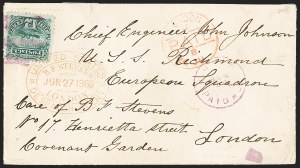 Chief Engineer John Johnson
U. S. S. Richmond
European Squadron
Care of B F Stevens
No 17. Henrietta street
Covenant Garden
London
JUN 27
PAID